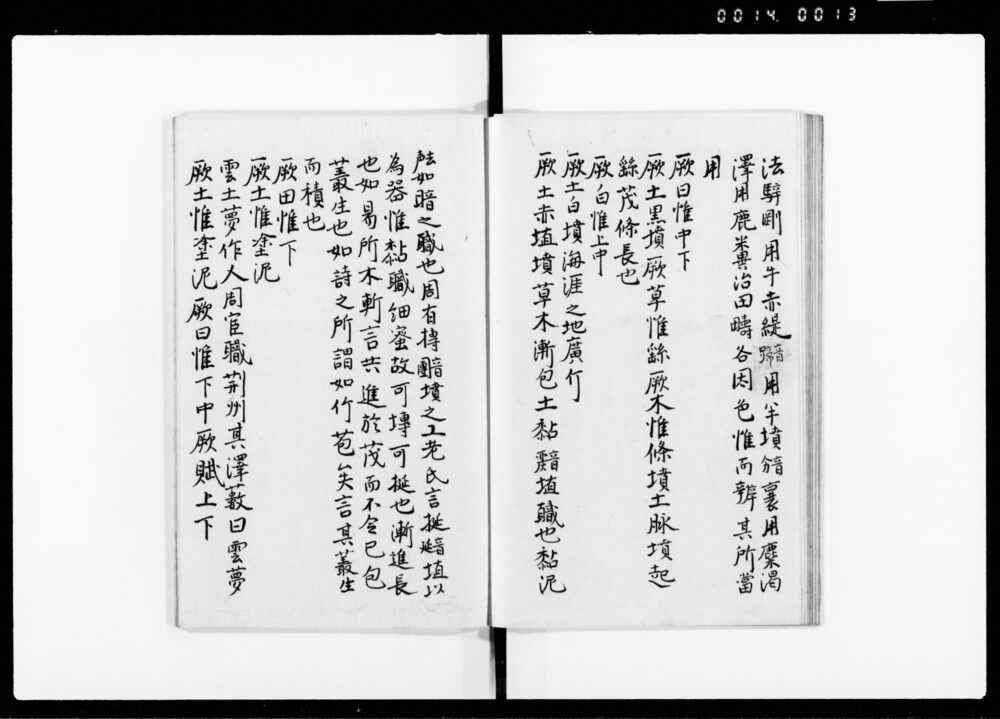 0014. 0013
法騂剛用牛赤緹用羊墳襄用麋渴
澤用鹿糞治田疇各因色惟而辨其所當
用
厥曰惟中下
厥土黒墳厥草惟繇厥木惟條墳土脉墳起
繇茂條長也
厥白惟上中
厥土白墳海涯之地廣斥
厥土赤埴墳草木漸包土黏埴職也黏泥
如暗之職也周有摶墳之工老氏言挻埴以
為器惟黏職細蜜故可塼可挻也漸進長
也如易所木漸言其進於茂而不令已包
叢生也如詩之所謂如竹苞矣言其叢生
而積也
厥田惟下
厥土惟塗泥
雲土夢作人周官職荊州其澤藪曰雲夢
厥土惟塗泥厥曰惟下中厥賦上下